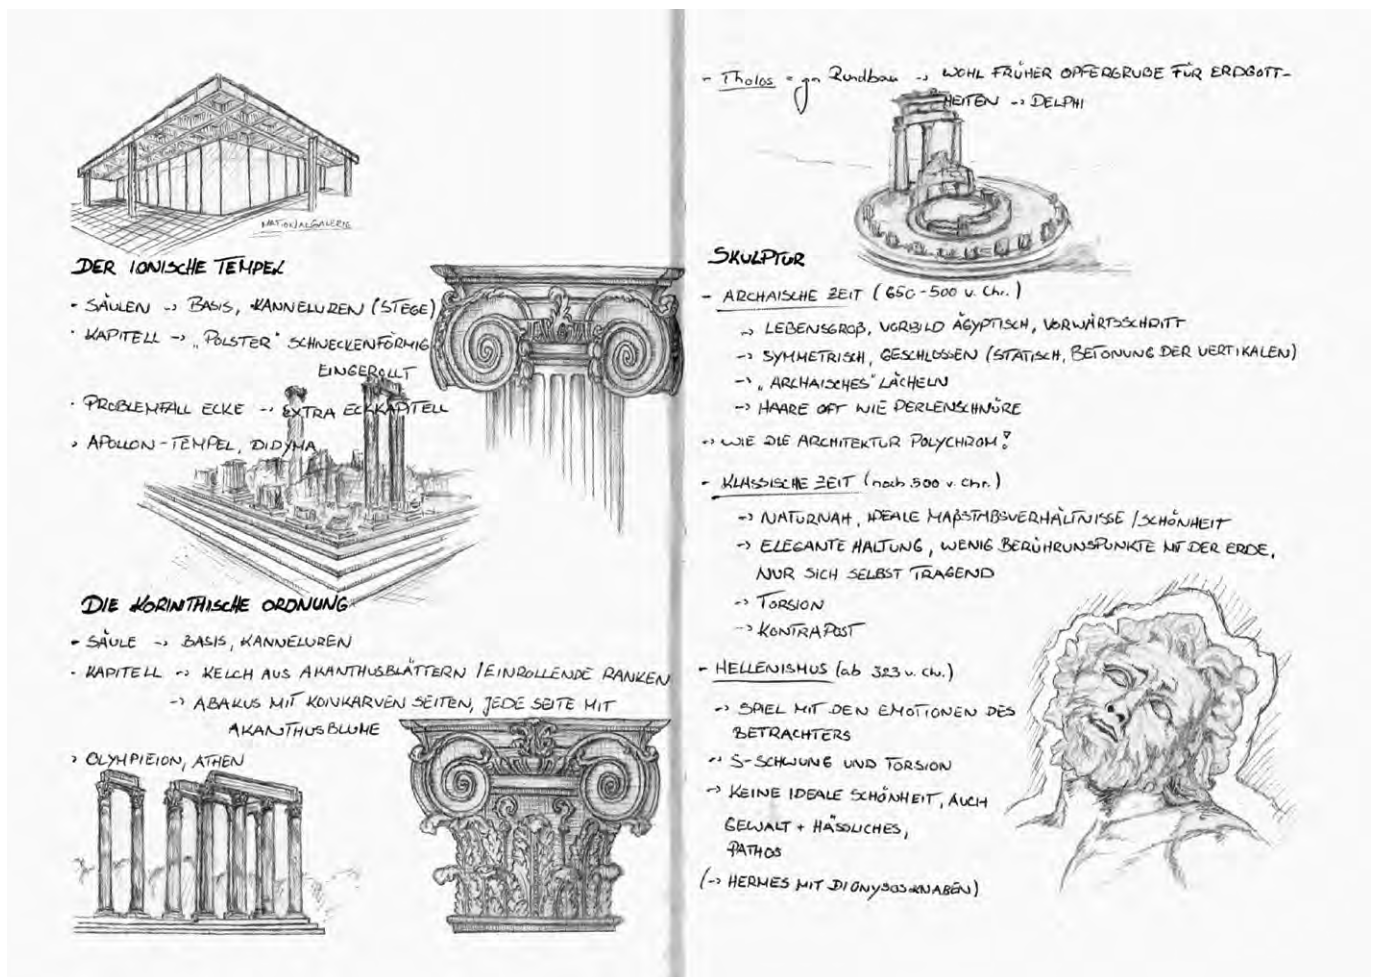 NATIONALGALERIE
DER IONISCHE TEMPEL
- SÄULEN -> BASIS, KANNELUREN (STEGE)
· KAPITELL -> „POLSTER“ SCHNECKENFÖRMIG
EINGEROLLT
· PROBLEMFALL ECKE -> EXTRA ECKKAPITELL
> APOLLON-TEMPEL, DIDYMA
DIE KORINTHISCHE ORDNUNG
- SÄULE -> BASIS, KANNELUREN
· KAPITELL -> KELCH AUS AKANTHUSBLÄTTERN / EINROLLENDE RANKEN
-> ABAKUS MIT KONKARVEN SEITEN, JEDE SEITE MIT
AKANTHUSBLUME
> OLYMPIEION, ATHEN
- Tholos = Rundbau -> WOHL FRÜHER OPFERGRUBE FÜR ERDGOTT-
HEITEN -> DELPHI
SKULPTUR
- ARCHAISCHE ZEIT (650-500 v. Chr.)
-> LEBENSGROß, VORBILD ÄGYPTISCH, VORWÄRTSSCHRITT
-> SYMMETRISCH, GESCHLOSSEN (STATISCH, BETONUNG DER VERTIKALEN)
-> „ARCHAISCHES“ LÄCHELN
-> HAARE OFT WIE PERLENSCHNÜRE
-> WIE DIE ARCHITEKTUR POLYCHROM!
- KLASSISCHE ZEIT (nach 500 v. Chr.)
-> NATURNAH, IDEALE MAßSTABSVERHÄLTNISSE / SCHÖNHEIT
-> ELEGANTE HALTUNG, WENIG BERÜHRUNSPUNKTE MIT DER ERDE,
NUR SICH SELBST TRAGEND
-> TORSION
-> KONTRAPOST
- HELLENISMUS (ab 323 v. Chr.)
-> SPIEL MIT DEN EMOTIONEN DES
BETRACHTERS
-> S-SCHWUNG UND TORSION
-> KEINE IDEALE SCHÖNHEIT, AUCH
GEWALT + HÄSSLICHES,
PATHOS
(-> HERMES MIT DIONYSOSKNABEN)